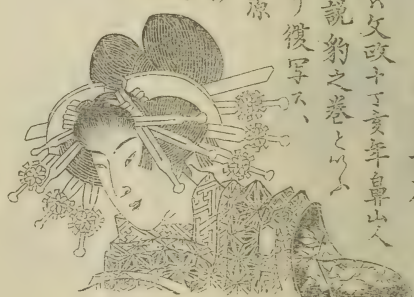 文政十丁亥年鼻山人
説豹之巻といふ
復写ス、
原